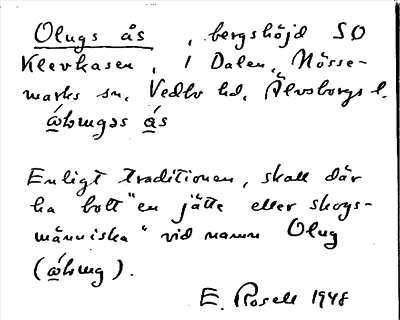 Olugs ås, bergshöjd SO
Klevkasen, i Dalen, Nösse-
marks sn, Vedbo hd, Älvsborgs l.
ås
Enligt traditionen, skall där
ha bott "en jätte eller skogs-
människa" vid namn Olug
E. Rosell 1948